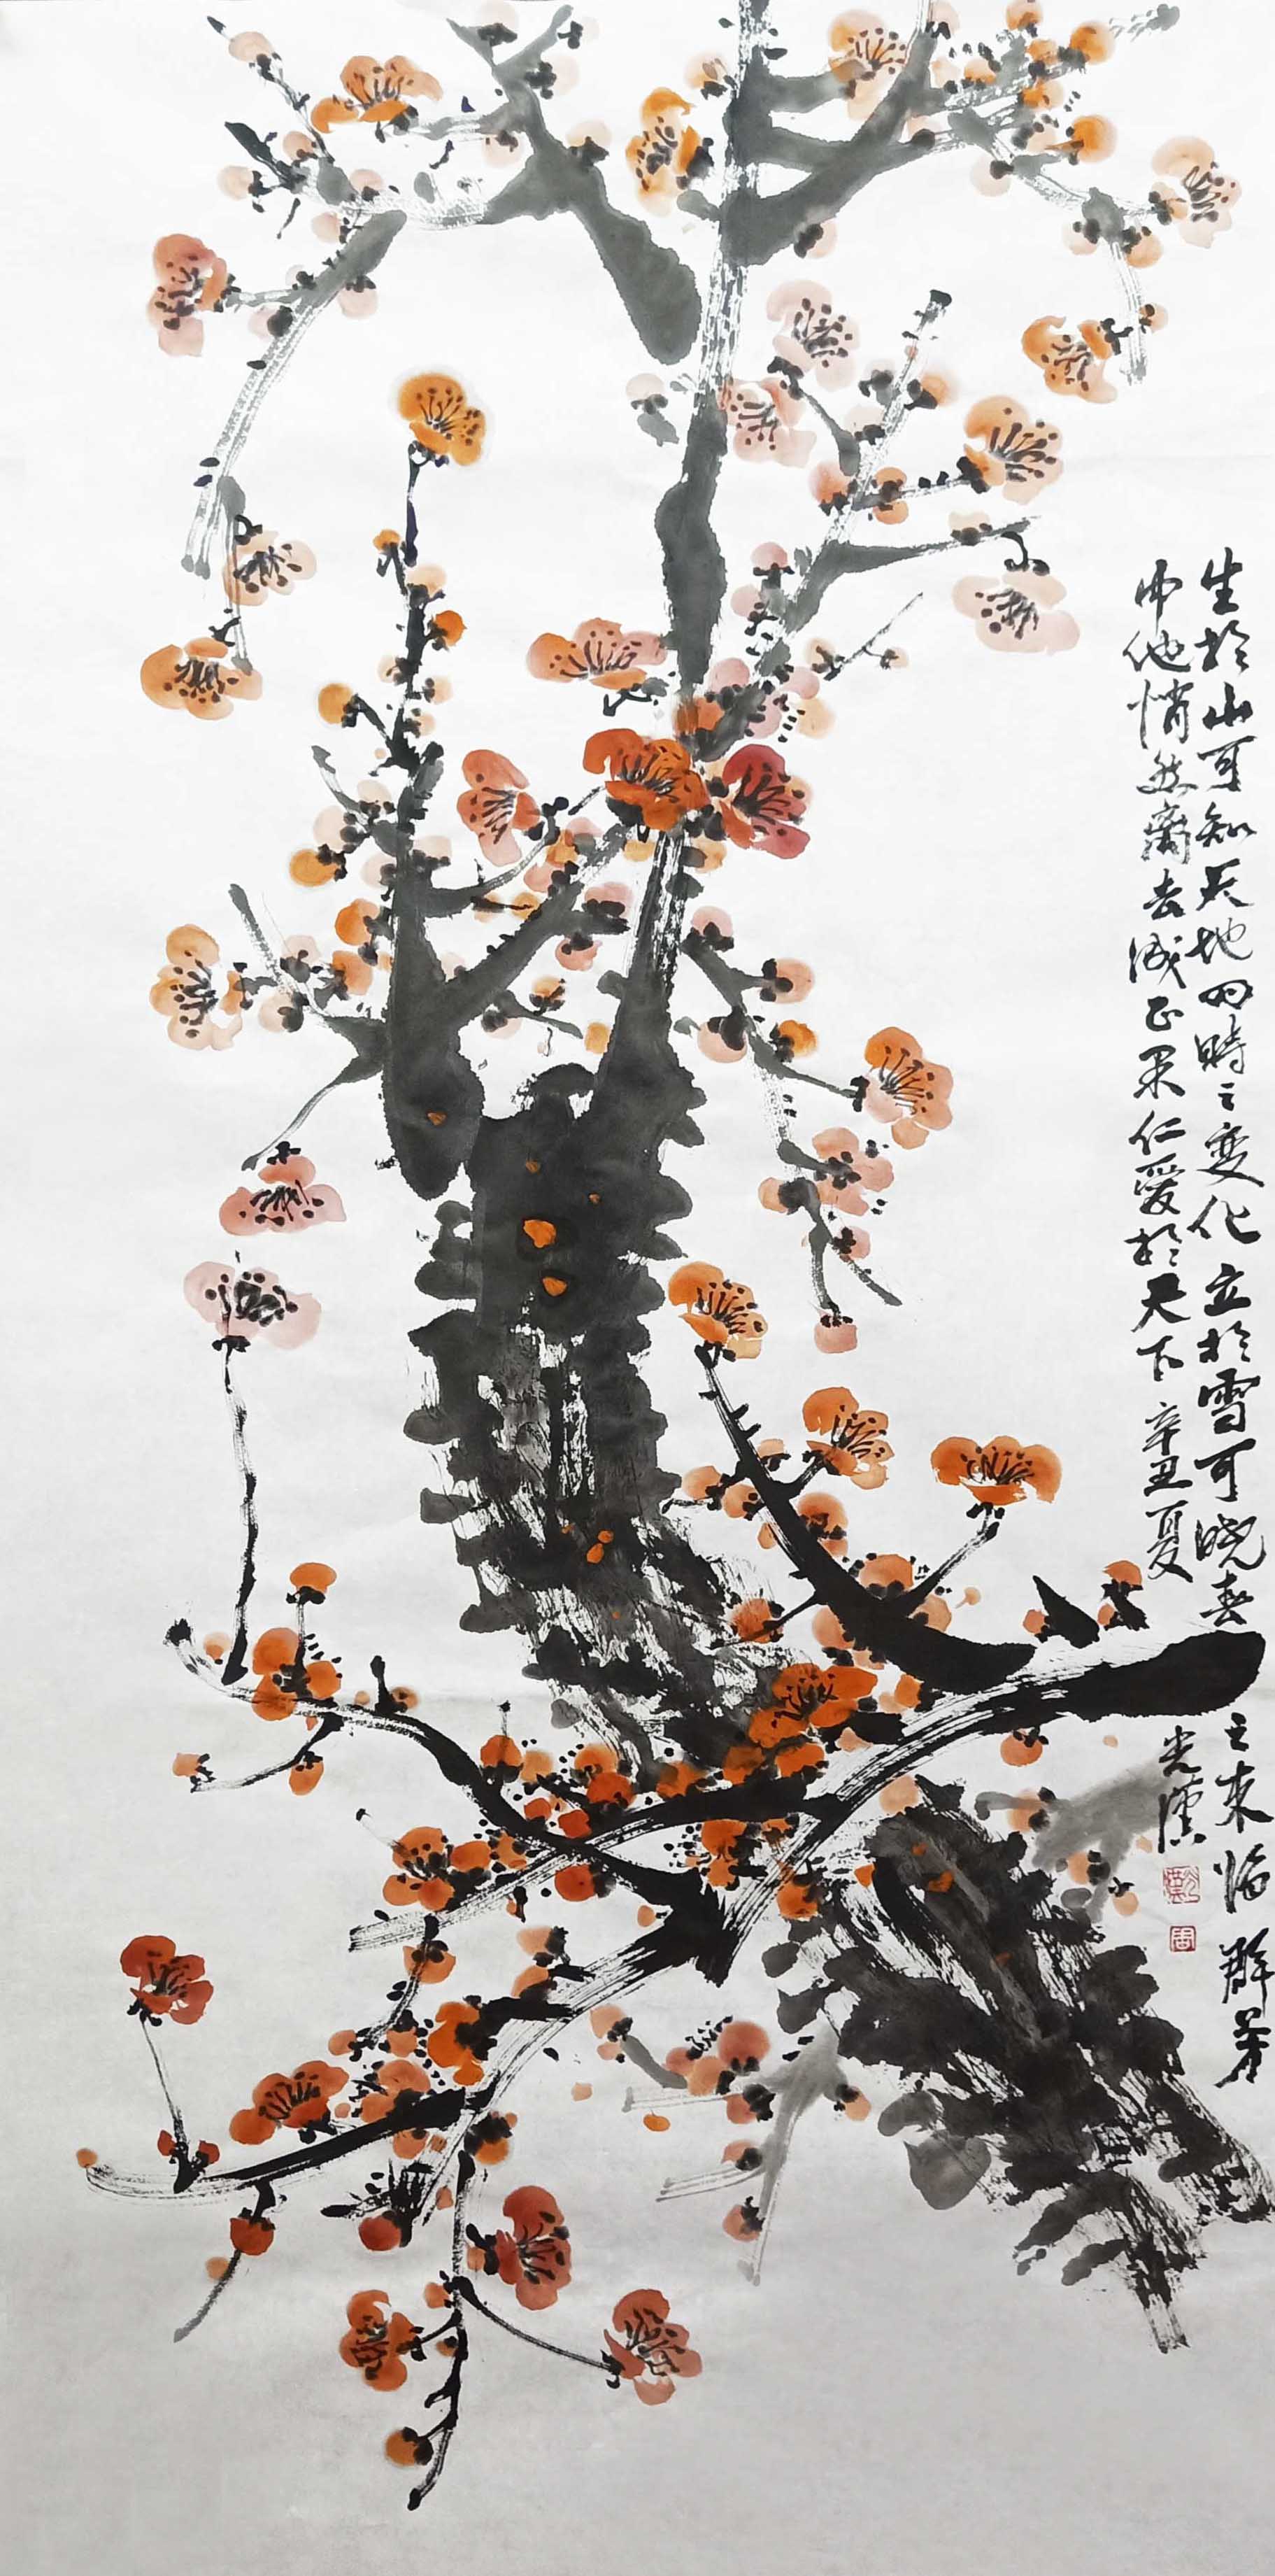 生於山可知天地四時之變化立於雪可曉春之來臨群芳
中他悄然離去成正果仁愛於天下辛丑夏
光漢